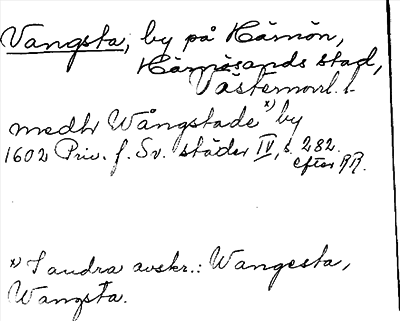 Vangsta, by på Härnön,
Härnösands stad,
Västernorrl. l.
medh Wångstade*) by
1602 Priv. f. Sv. städer IV, s. 282.
efter RR.
*) I andra avskr.: Wangesta,
Wangsta.